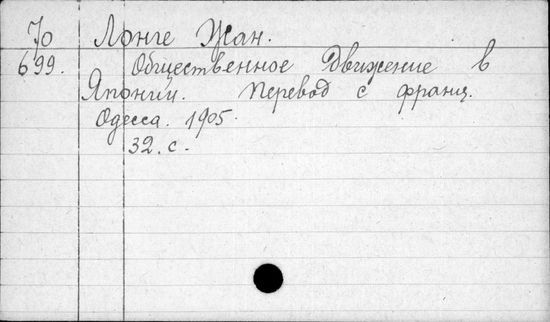 70 Лонге Жан.
699. Общественное Движение в
Японии. Перевод с франц.
Одесса. 1905.
32. с.